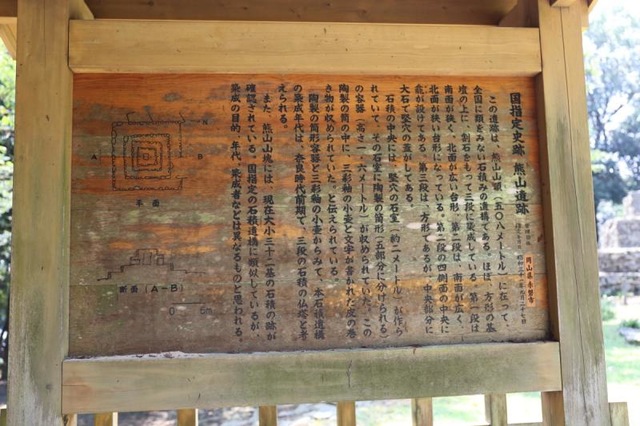 国指定史跡 熊山遺跡
岡山県赤磐市
この遺跡は、熊山山頂（五〇八メートル）に在って、
全国に類をみない石積みの遺構である。ほぼ、方形の基
壇の上に、割石をもって三段に築成している。第一段は
南面が狭く、北面が広い台形、第二段は、南面が広く、
北面が狭い台形になっている。第二段の四側面の中央に
龕が設けてある。第三段は、方形であるが、中央部分に
大石で竪穴の蓋がしてある。
石積の中央には、竪穴の石室（約二メートル）が作ら
れていて、その石室に陶製の筒形（五部分に分けられる）
の容器（高さ一・六メートル）が収められていた。この
陶製の筒の中に、三彩釉の小壷と文字が書かれた皮の巻
き物が収められていた、と伝えられている。
陶製の筒形容器と三彩釉の小壷からみて、本石積遺構
の築成年代は、奈良時代前期で、三段の石積の仏塔と考
えられる。
また、熊山山塊には、現在大小三十二基の石積の跡が
確認されている。国指定の石積遺構に類似しているが、
築成の目的、年代、築成者などは異なるものと思われる。
N
A
B
平面
断面（A-B）
0 5m